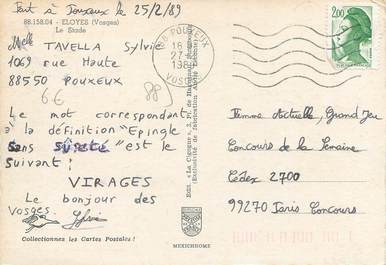 Fait à Pouxeux le 25/2/89
88.158.04 - ELOYES (Vosges)
Le Stade
Melle TAVELLA Sylvie
1069 rue Haute
88550 POUXEUX
6€
Le mot correspondant
à la définition "Epingle
Sans sûreté" est le
suivant:
VIRAGES
Le bonjour des
Vosges.
Sylvie
Collectionnez les Cartes Postales !
MEXICHROME
88 POUXEUX
27-2
1989
VOSGES
2,00
Femme Actuelle, Grand Jeu
Concours de la Semaine
Cedex 2700
99270 Paris Concours